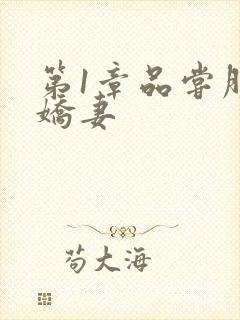 第1章品尝
娇妻
苟大海